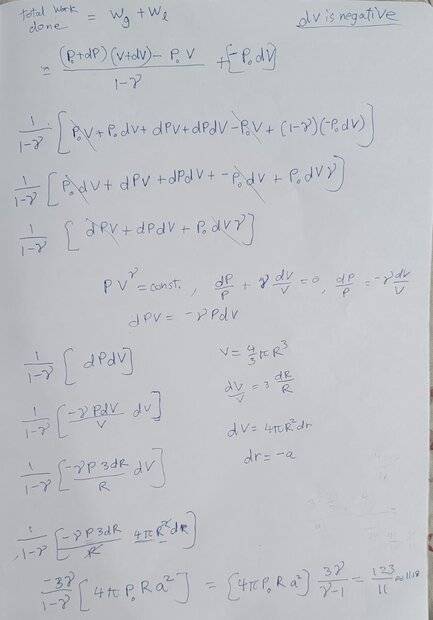 total work done = Wg + Wl
dV is negative
= (P₀+dP)(V+dV) - P₀V / 1-γ + [-P₀dV]
1/1-γ [P₀V + P₀dV + dPV + dPdV - P₀V + (1-γ)(-P₀dV)]
1/1-γ [P₀dV + dPV + dPdV + -P₀dV + P₀dVγ]
1/1-γ [dPV + dPdV + P₀dVγ]
PV^γ = const. , dP/P + γ dV/V = 0, dP/P = -γ dV/V
dPV = -γPdV
1/1-γ [dPdV]
V = 4/3 πR³
dV/V = 3 dR/R
1/1-γ [-γPdV/V dV]
dV = 4πR²dr
dr = -a
1/1-γ [-γP3dR/R dV]
1/1-γ [-γP3dR/R 4πR²dR]
-3γ/1-γ [4πP₀Ra²] = [4πP₀Ra²] 3γ/γ-1 = 123/11 ≈ 11.18